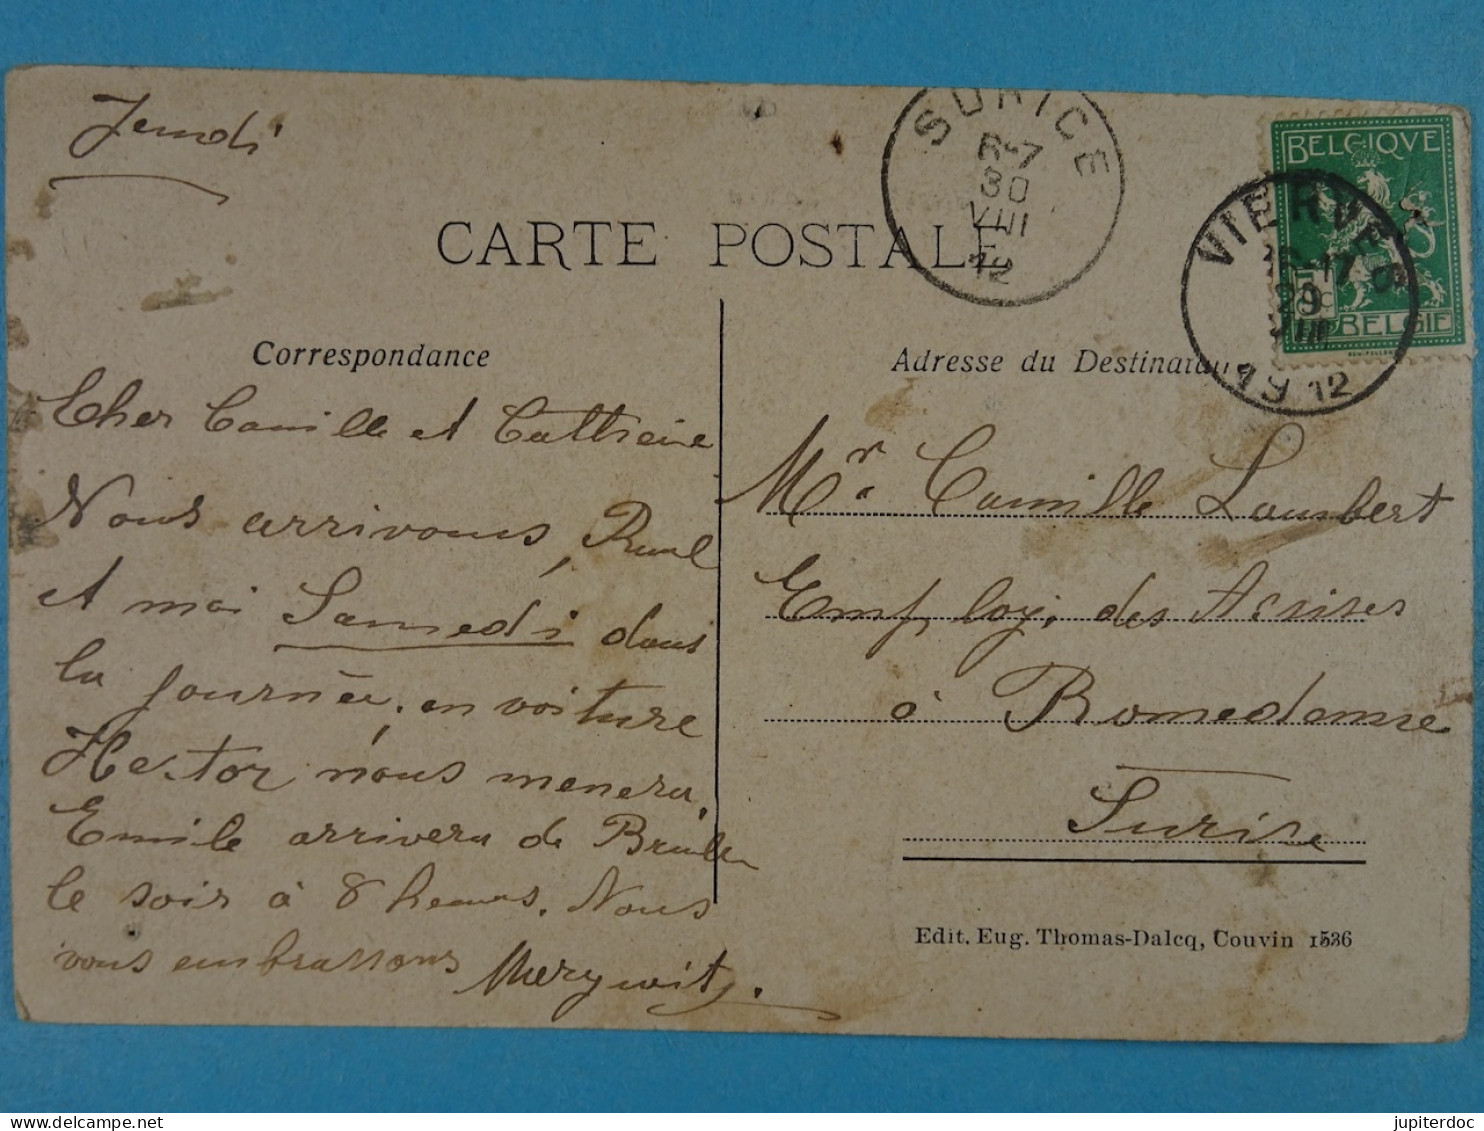 Jeudi
CARTE POSTALE
SURICE
6-7
30
VIII
12
BELGIQUE
BELGIE
VIERVES
17
29
VIII
19 12
Correspondance
Cher Camille et Catherine
Nous arrivons, Paul
et moi Samedi dans
la journée, en voiture
Hector nous menera.
Emile arrivera de
le soir à 8 heures. Nous
vous embrassons
Adresse du Destinataire
Mr. Camille Lambert
Employ. des Acsises
à Romedenne
Surise
Edit. Eug. Thomas-Dalcq, Couvin 1536
delcampe.net
jupiterdoc